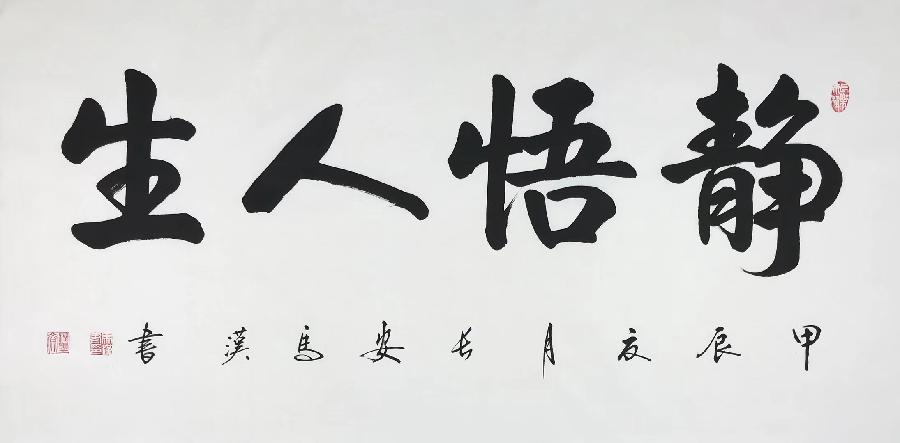 静悟人生
甲辰夏月长安马汉书